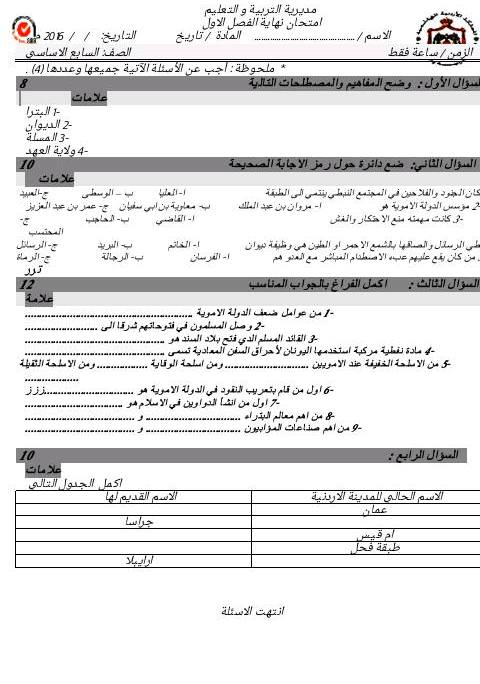 مديرية التربية و التعليم
امتحان نهاية الفصل الاول
الاسم / ............ المادة / تاريخ التاريخ: / / 2016 م
الزمن / ساعة فقط الصف السابع الاساسي
* ملحوظة : أجب عن الأسئلة الآتية جميعها وعددها (4) .
السؤال الأول : وضح المفاهيم والمصطلحات التالية 8
علامات
1- البترا
2- الديوان
3- المسلة
4- ولاية العهد
السؤال الثاني: ضع دائرة حول رمز الاجابة الصحيحة 10
علامات
كان الجنود والفلاحين في المجتمع النبطي ينتمي الى الطبقة ا- العليا ب – الوسطى ج-العبيد
2- مؤسس الدولة الاموية هو ا- مروان بن عبد الملك ب- معاوية بن ابي سفيان ج- عمر بن عبد العزيز
3- كانت مهمته منع الاحتكار والغش ا- القاضي ب- الحاجب ج-
المحتسب
الرسائل والصاقها بالشمع الاحمر او الطين هي وظيفة ديوان ا- الخاتم ب- البريد ج- الرسائل
من كان يقع عليهم عبء الاصطدام المباشر مع العدو هم ا- الفرسان ب- الرجالة ج- الرماة
ترر
السؤال الثالث : اكمل الفراغ بالجواب المناسب 12
علامة
1- من عوامل ضعف الدولة الاموية ............
2- وصل المسلمون في فتوحاتهم شرقا الى ............
3- القائد المسلم الذي فتح بلاد السند هو ............
4- مادة نفطية مركبة استخدمها اليونان لأحراق السفن المعادية تسمى ............
5- من الاسلحة الخفيفة عند الامويين ............ ومن اسلحة الوقاية ............ ومن الاسلحة الثقيلة
............
6- اول من قام بتعريب النقود في الدولة الاموية هو ............ززز
7- اول من انشأ الدواوين في الاسلام هو ............
8- من اهم معالم البتراء ............ و ............
9- من اهم صناعات المؤابيون ............ و ............
السؤال الرابع : 10
علامات
اكمل الجدول التالي
الاسم الحالي للمدينة الاردنية الاسم القديم لها
عمان
جراسا
ام قيس
طبقة فحل
ارابيلا
انتهت الاسئلة